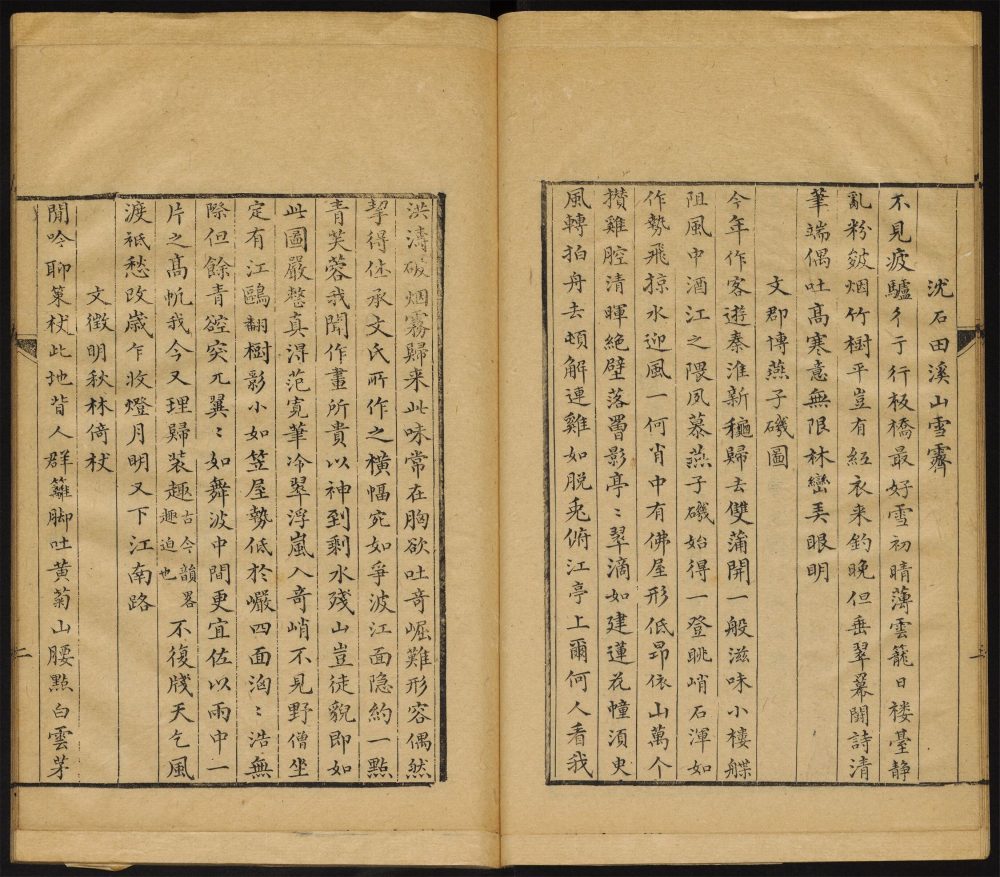 沈石田溪山雪霽
不見疲驢彳亍行板橋最好雪初晴薄雲籠日楼臺靜
亂粉皴烟竹樹平豈有紅衣来釣晚但垂翠幕開詩清
筆端偶吐高寒意無限林巒美眼明
文郡博燕子磯圖
今年作客遊秦淮新穐歸去雙蒲開一般滋味小樓艓
阻風中酒江之隈夙慕燕子磯始得一登眺峭石渾如
作勢飛掠水迎風一何肖中有佛屋形低昂依山萬个
攢雞腔清暉絶壁落疊影亭〻翠滴如建蓮花幢湏臾
風轉拍舟去頓解連雞如脱兎俯江亭上爾何人看我
洪濤破烟霧歸来此味常在胸欲吐竒崛難形容偶然
挈得侂承文氏所作之横幅宛如爭波江面隐約一點
青芙蓉我聞作畫所貴以神到剩水殘山豈徒貌即如
此圖嚴整真得范寛筆冷翠浮嵐人竒峭不見野僧坐
定有江鷗翻樹影小如笠屋勢低於巖四面洶〻浩無
際但餘青硿突兀翼〻如舞波中間更宜佐以雨中一
片之高帆我今又理歸装趣古今韻畧趣迫也不復牋天乞風
渡祗愁改歲乍收燈月明又下江南路
文徵明秋林倚杖
閒吟聊策杖此地背人群籬脚吐黄菊山腰點白雲茅
二